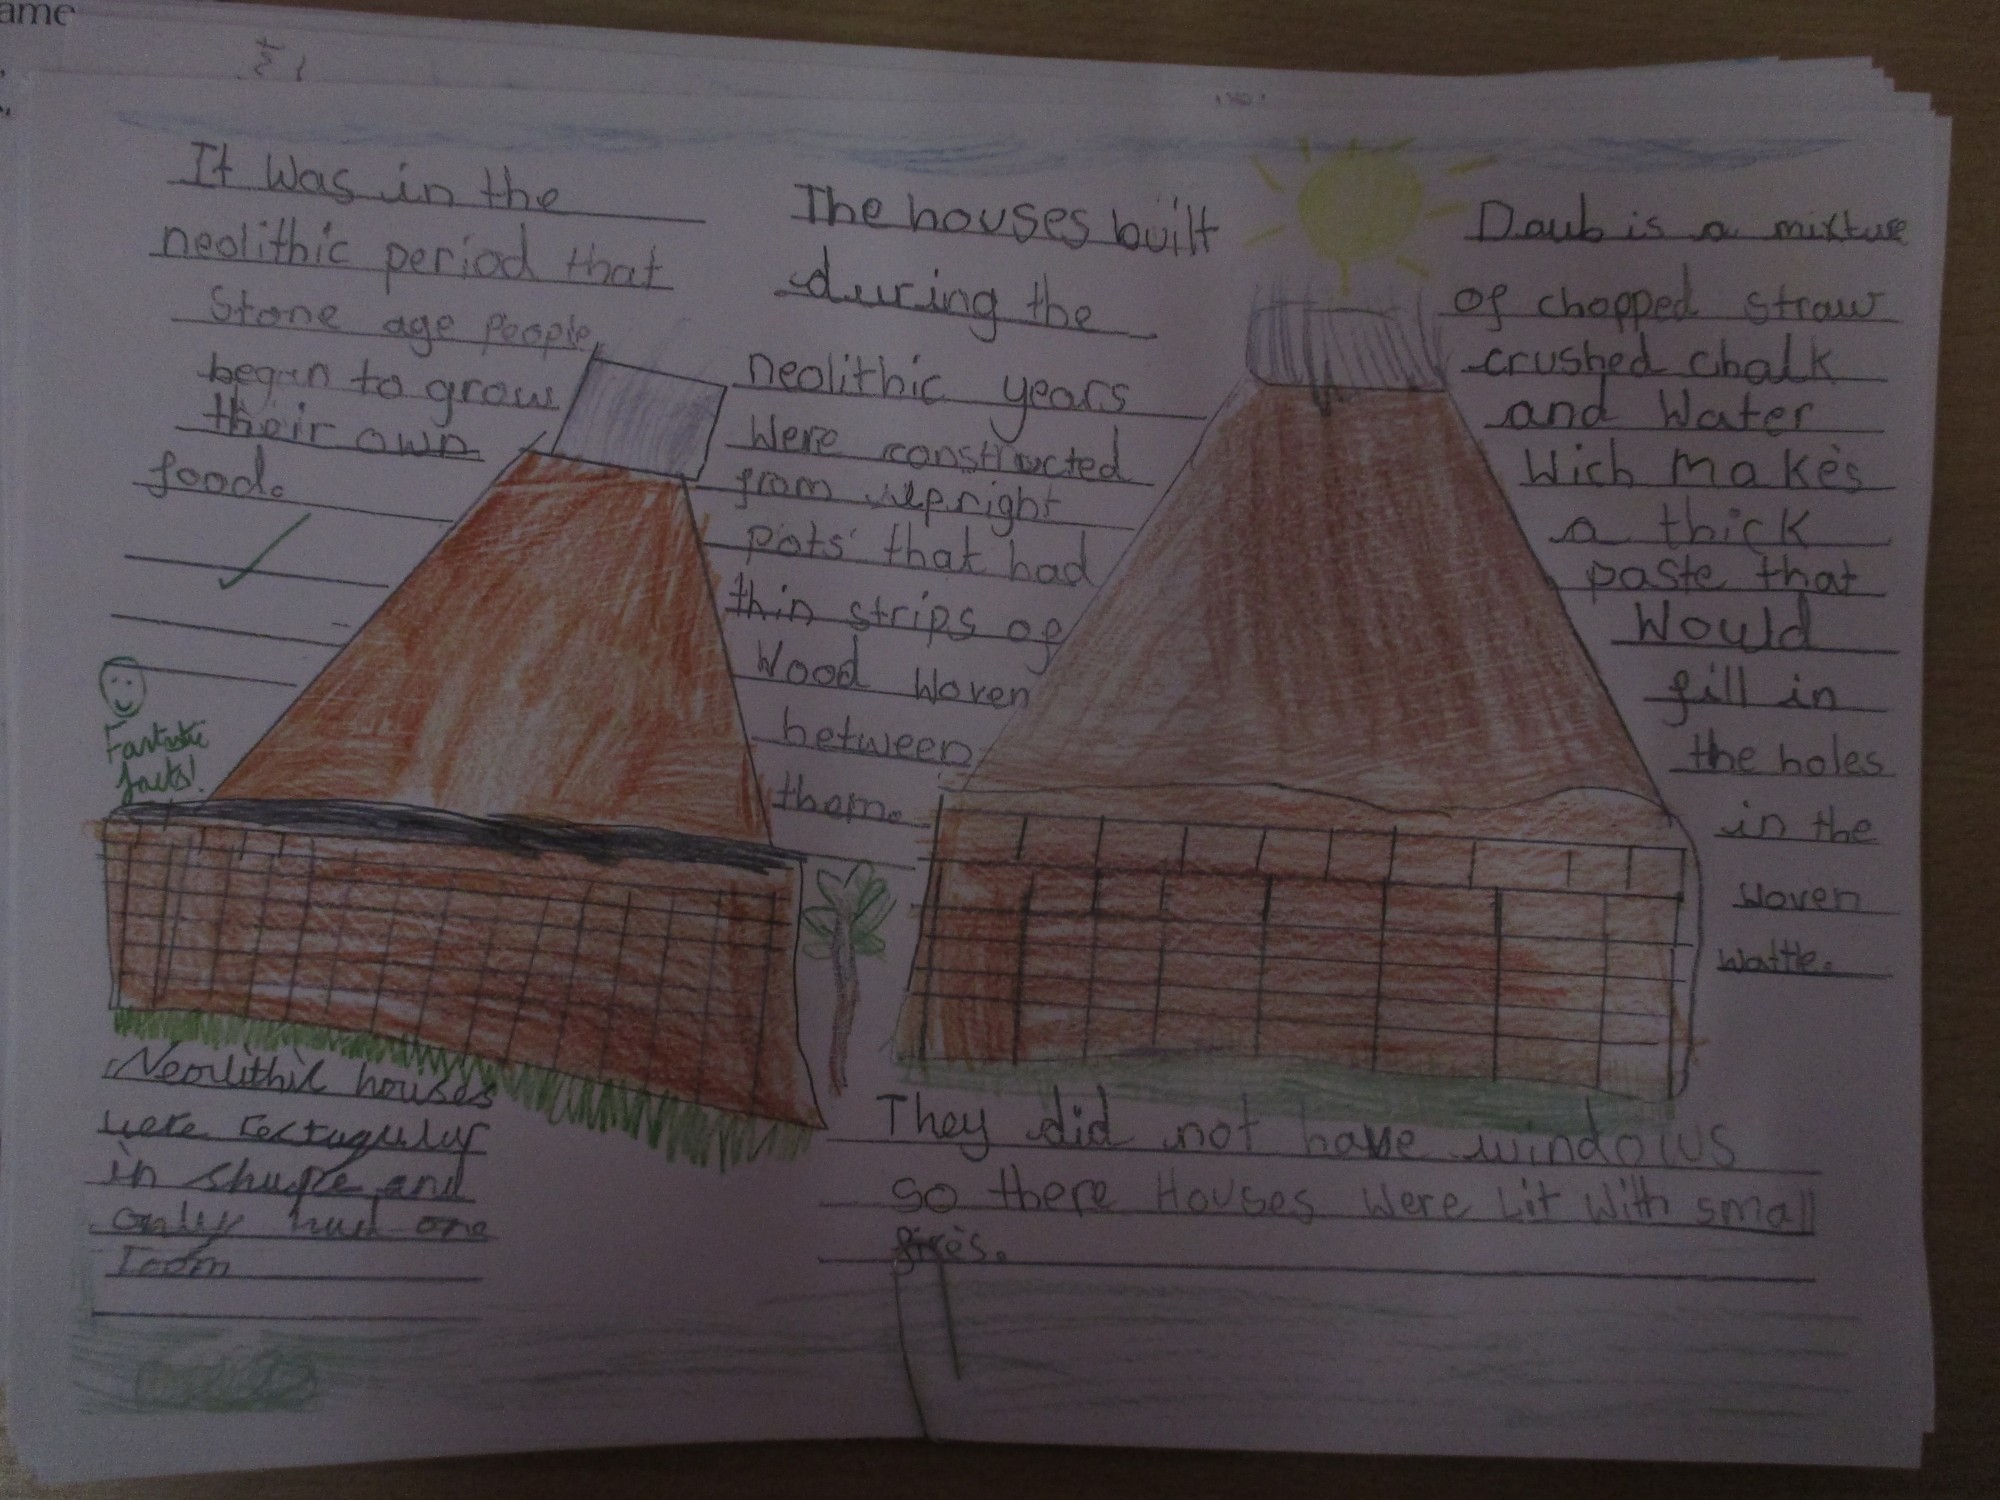 ame
It was in the
neolithic period that
Stone age people
began to grow
their own
food.
Fantastic
facts!
The houses built
during the
neolithic years
Were constructed
from upright
pots that had
thin strips of
Wood Woven
between
them.
Daub is a mixture
of chopped straw
crushed chalk
and Water
Wich makes
a thick
paste that
Would
fill in
the holes
in the
woven
wattle.
Neolithic houses
were rectagular
in shape and
only had one
room
They did not have windows
so there Houses Were Lit With small
fires.